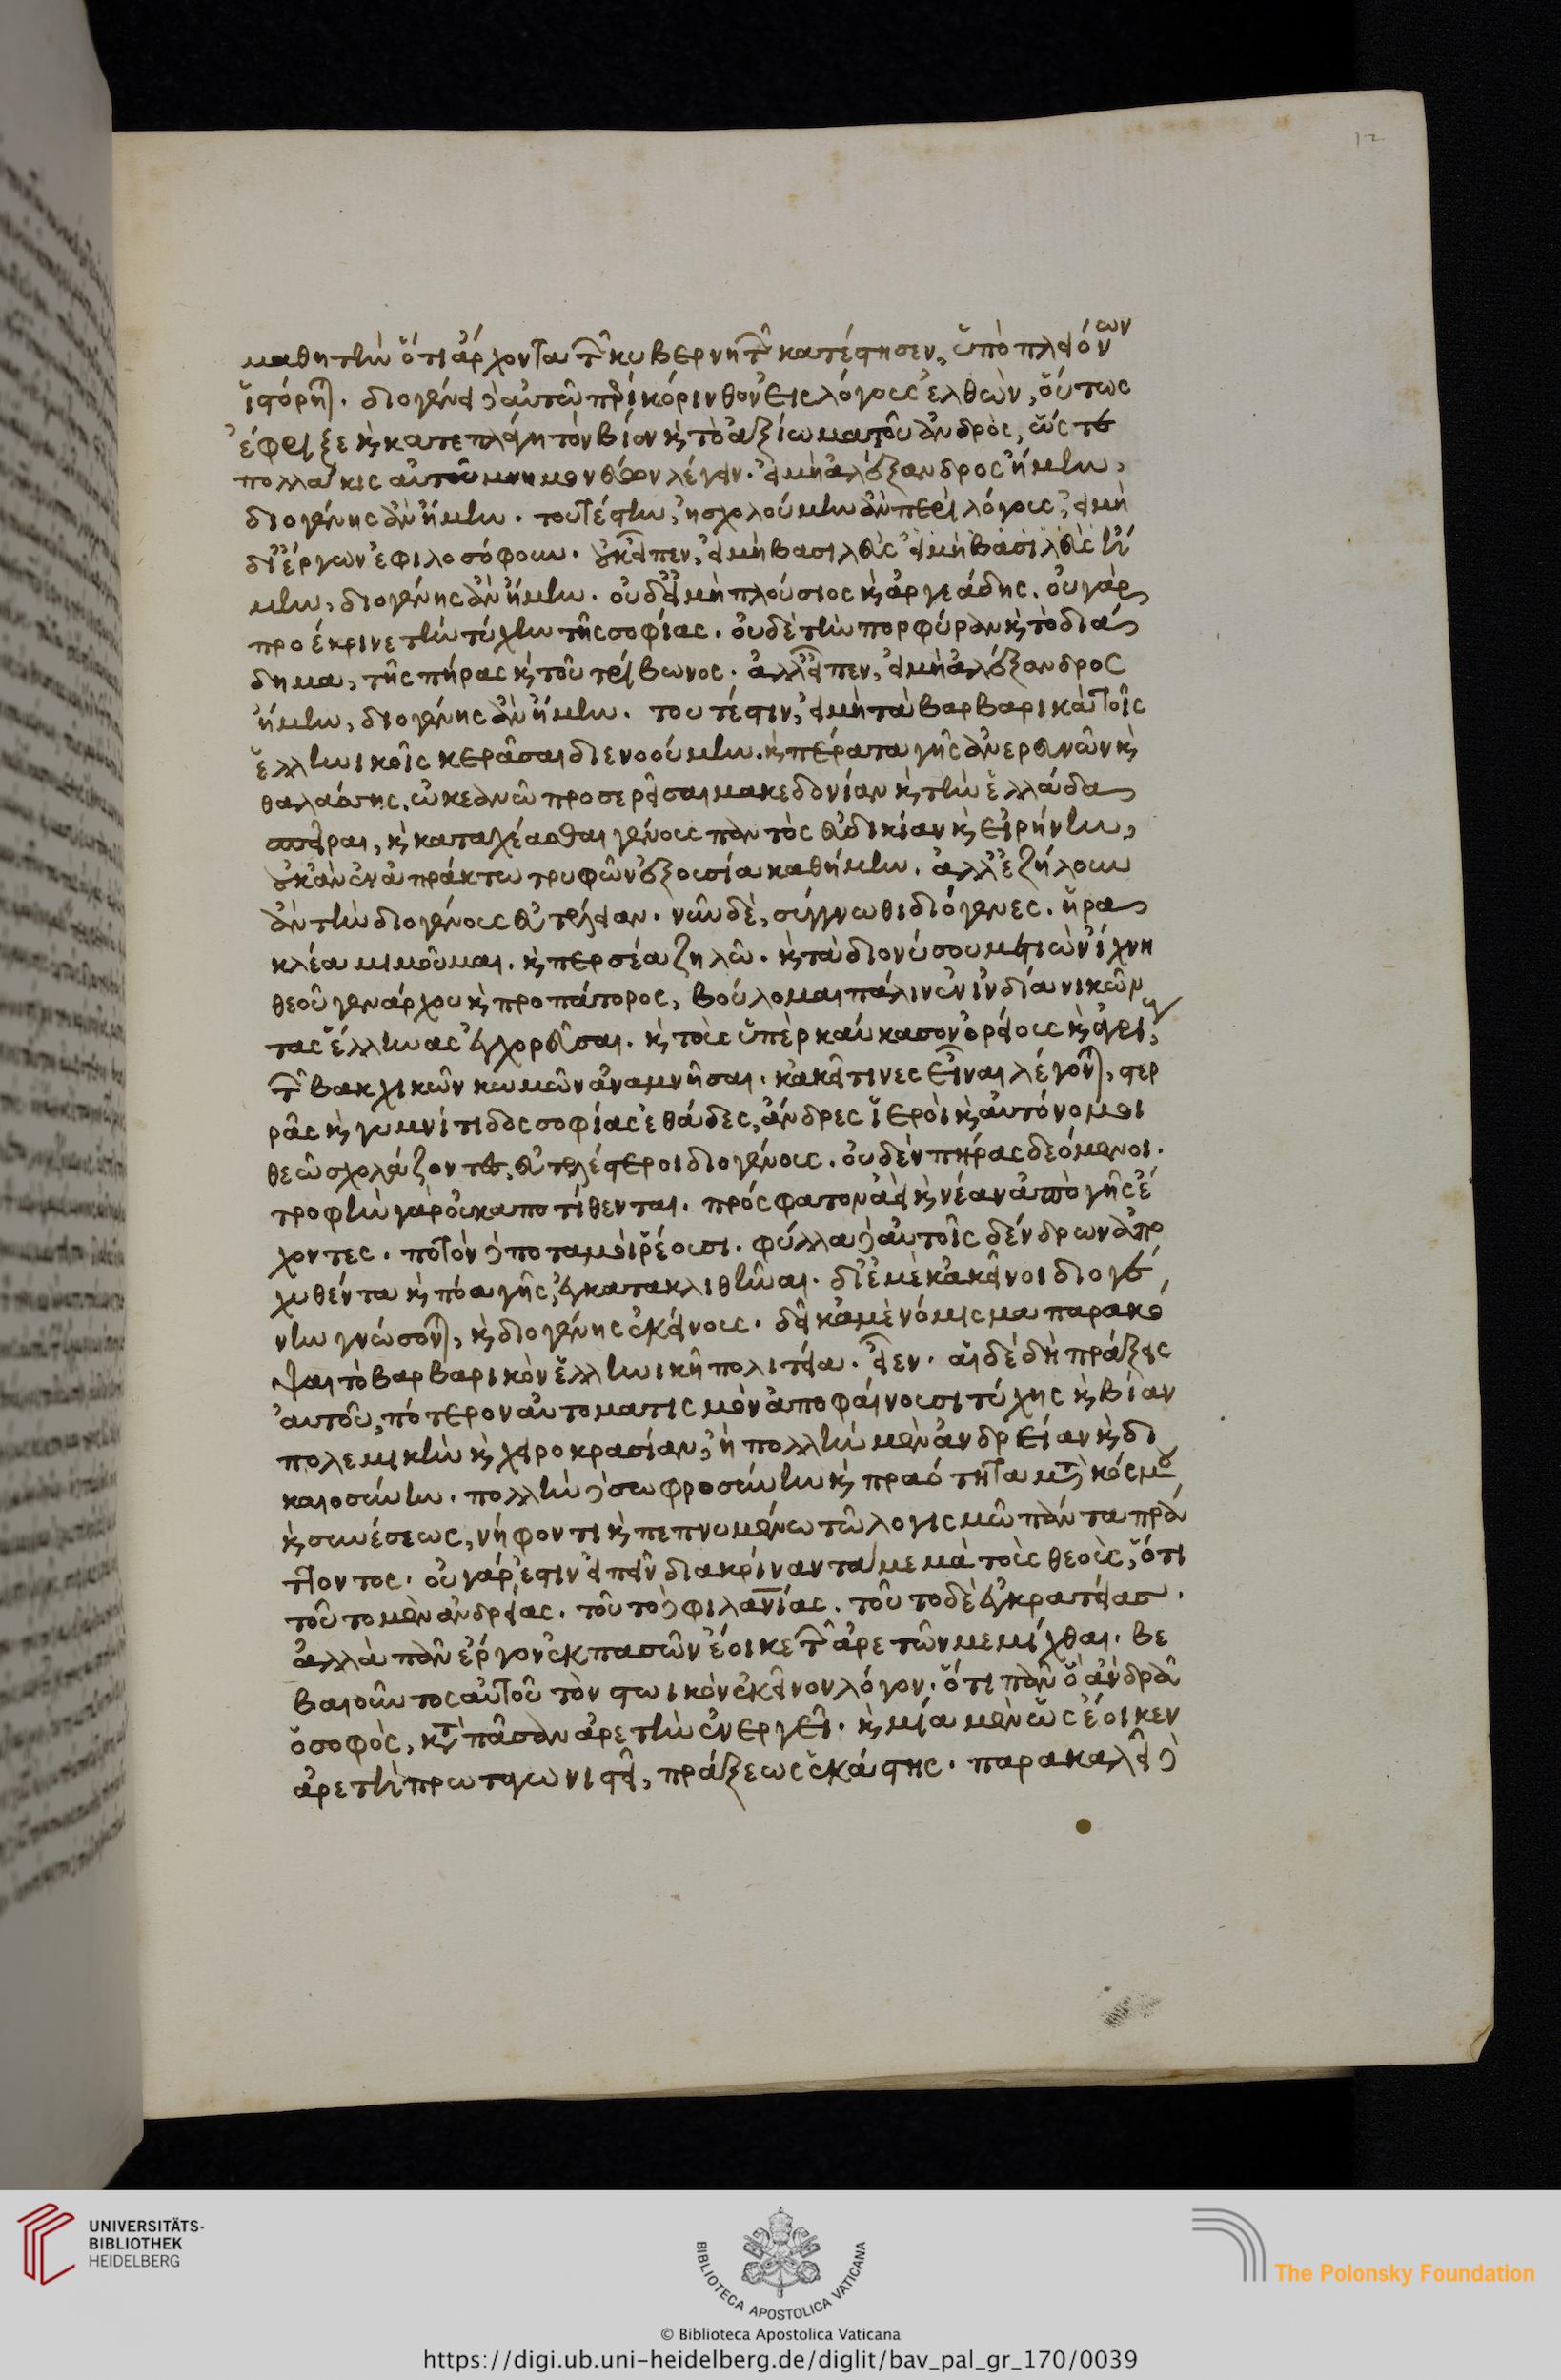 12
μαθητὴν ὅτι ἄρχοντα τῶν κυβερνητῶν κατέστησεν, ὑπὸ πλειόνων
ἱστόρηται. διογένει δὲ αὐτῷ περὶ κόρινθον εἰς λόγους ἐλθὼν, οὕτως
ἔφριξε καὶ κατεπλάγη τὸν βίον καὶ τὸ ἀξίωμα τοῦ ἀνδρὸς, ὥστε
πολλάκις αὐτοῦ μνημονεύων λέγειν. εἰ μὴ ἀλέξανδρος ἤμην,
διογένης ἂν ἤμην. τουτέστιν, ἠσχολούμην ἂν περὶ λόγους, εἰ μὴ
δι' ἔργων ἐφιλοσόφουν. οὐκ εἶπεν, εἰ μὴ βασιλεὺς εἰ μὴ βασιλεὺς ἤ
μην, διογένης ἂν ἤμην. οὐδ' εἰ μὴ πλούσιος καὶ ἀργεάδης. οὐ γὰρ
προέκρινε τὴν τύχην τῆς σοφίας. οὐδὲ τὴν πορφύραν καὶ τὸ διά
δημα, τῆς πήρας καὶ τοῦ τρίβωνος. ἀλλ' εἶπεν, εἰ μὴ ἀλέξανδρος
ἤμην, διογένης ἂν ἤμην. τουτέστιν, εἰ μὴ τὰ βαρβαρικὰ τοῖς
ἑλληνικοῖς κεράσαι διενοούμην. καὶ πέρατα γῆς ἀνερευνῶν καὶ
θαλάσσης, ὠκεανῷ προσερεῖσαι μακεδονίαν καὶ τὴν ἑλλάδα
σπεῖραι, καὶ καταχέασθαι γένους παντὸς εὐδικίαν καὶ εἰρήνην,
οὐκ ἂν ἐν ἀπράκτω τρυφῶν ἐξουσία καθήμην. ἀλλ' ἐζήλουν
ἂν τὴν διογένους εὐτέλειαν. νῦν δὲ, σύγγνωθι διόγενες. ἡρα
κλέα μιμοῦμαι. καὶ περσέα ζηλῶ. καὶ τὰ διονύσου μετιὼν ἴχνη
θεοῦ γενάρχου καὶ προπάτορος, βούλομαι πάλιν ἐν ἰνδία νικῶν
τας ἕλληνας ἐγχορεῦσαι. καὶ τοὺς ὑπὲρ καύκασον ὀρείους καὶ ἀγρίους
τῶν βακχικῶν κώμων ἀναμνῆσαι. κἀκεῖ τινες εἶναι λέγονται, στερ
ρᾶς καὶ γυμνίτιδος σοφίας ἐθάδες, ἄνδρες ἱεροὶ καὶ αὐτόνομοι
θεῷ σχολάζοντες, εὐτελέστεροι διογένους. οὐδὲν πήρας δεόμενοι.
τροφὴν γὰρ οὐκ ἀποτίθενται. πρόσφατον ἀεὶ καὶ νέαν ἀπὸ γῆς ἔ
χοντες. ποτὸν δὲ ποταμοὶ ῥέουσι. φύλλα δὲ αὐτοῖς δένδρων ἀπο
χυθέντα καὶ πόα γῆς, ἐγκατακλιθῆναι. δι' ἐμὲ κἀκεῖνοι διογέ
νην γνώσονται, καὶ διογένης ἐκείνους. δεῖ κἀμὲ νόμισμα παρακό
ψαι τὸ βαρβαρικὸν ἑλληνικῇ πολιτεία. εἶεν. αἱ δὲ δὴ πράξεις
αὐτοῦ, πότερον αὐτοματισμὸν ἀποφαίνουσι τύχης καὶ βίαν
πολεμικὴν καὶ χειροκρασίαν, ἢ πολλὴν μὲν ἀνδρείαν καὶ δι
καιοσύνην. πολλὴν δὲ σωφροσύνην καὶ πραότητα μετὰ κόσμου
καὶ συνέσεως, νήφοντι καὶ πεπνυμένω τῷ λογισμῷ πάντα πρά
ττοντος. οὐ γάρ ἐστιν εἰπεῖν διακρίναντα με μὰ τοὺς θεοὺς, ὅτι
τοῦτο μὲν ἀνδρείας. τοῦτο δὲ φιλανίας. τοῦτο δὲ ἐγκρατείας.
ἀλλὰ πᾶν ἔργον ἐκ πασῶν ἔοικε τῶν ἀρετῶν μεμίχθαι. βε
βαιοῦντος αὐτοῦ τὸν στωικὸν ἐκεῖνον λόγον. ὅτι πᾶν ὃ ἂν δρᾶ
ὁ σοφὸς, κατὰ πᾶσαν ἀρετὴν ἐνεργεῖ. καὶ μία μὲν ὡς ἔοικεν
ἀρετὴ πρωταγωνιστεῖ, πράξεως ἑκάστης. παρακαλεῖ δὲ
UNIVERSITÄTS-
BIBLIOTHEK
HEIDELBERG
BIBLIOTECA APOSTOLICA VATICANA
The Polonsky Foundation
© Biblioteca Apostolica Vaticana
https://digi.ub.uni-heidelberg.de/diglit/bav_pal_gr_170/0039